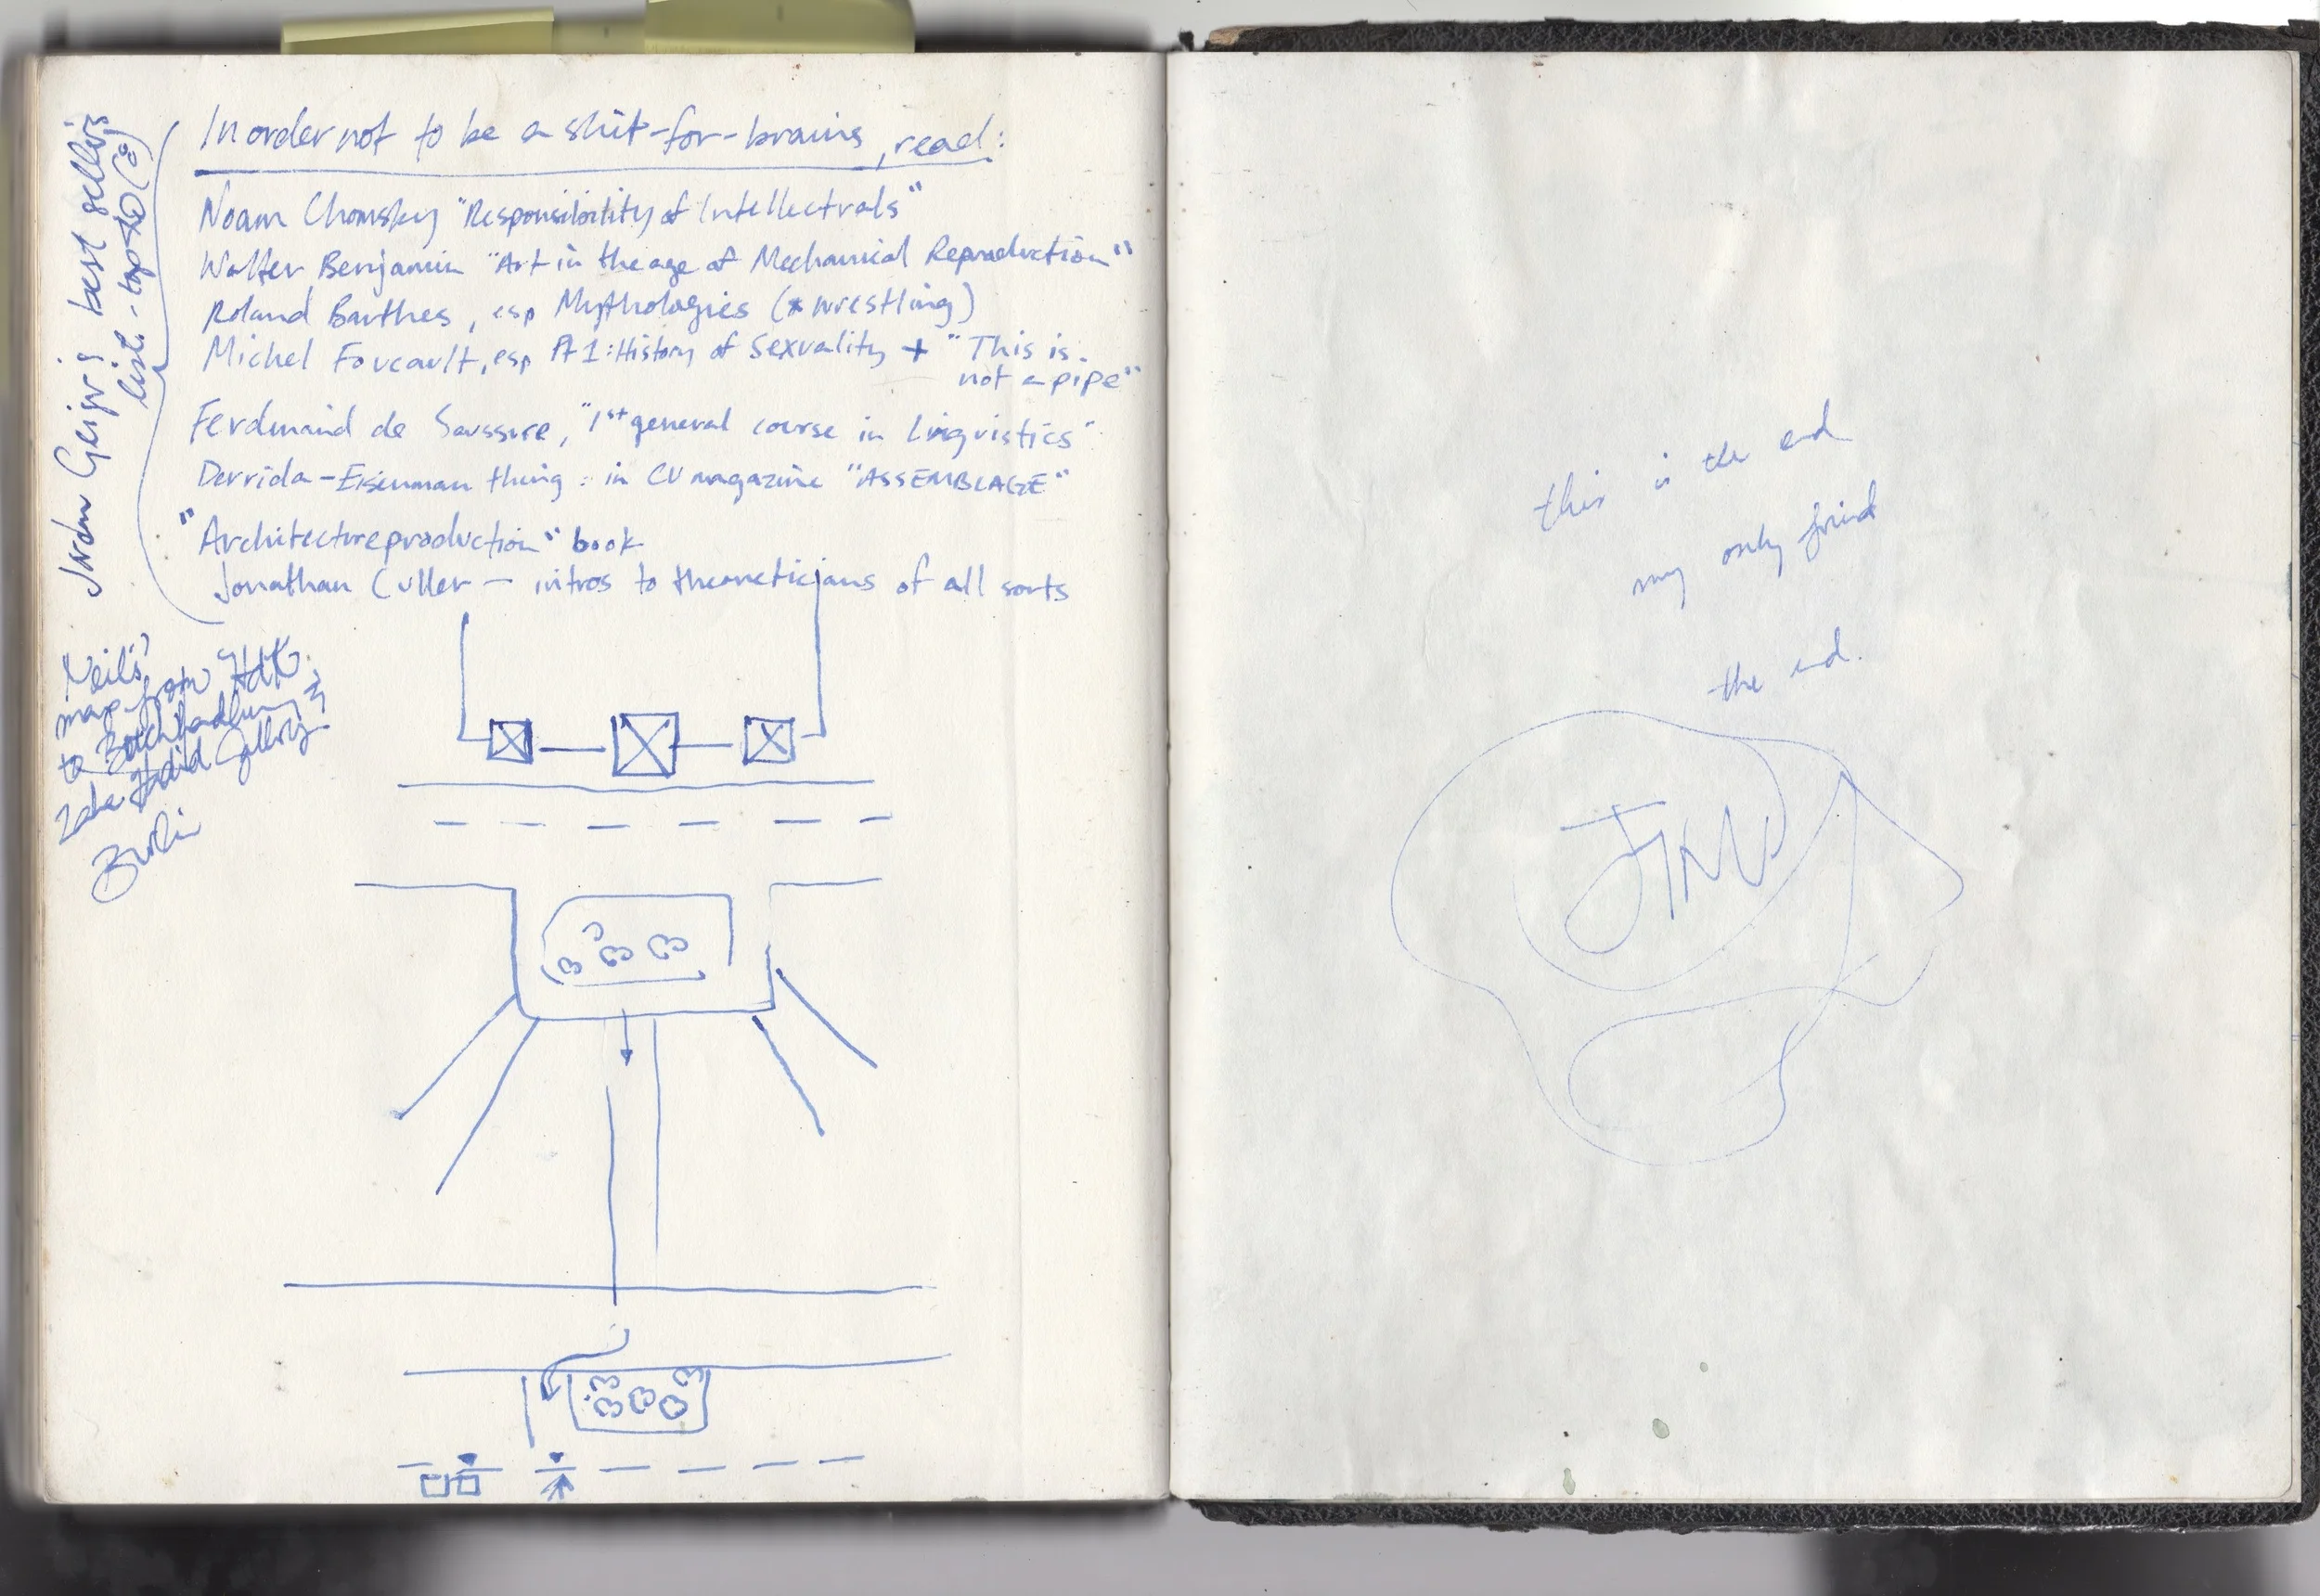 In order not to be a shit-for-brains, read:
Noam Chomsky "Responsibility of Intellectuals"
Walter Benjamin "Art in the age of Mechanical Reproduction"
Roland Barthes, esp Mythologies (* wrestling)
Michel Foucault, esp Pt 1: History of Sexuality + "This is
not a pipe"
Ferdinand de Saussure, "1st general course in linguistics"
Derrida-Eisenman thing: in CU magazine "ASSEMBLAGE"
"Architectureproduction" book
Jonathan Culler — intros to theoreticians of all sorts
Jordan Geiger's best sellers
list - top
Neil's
map from "HdK"
to
Zaha Hadid Gallery
Berlin
this is the end
my only friend
the end.